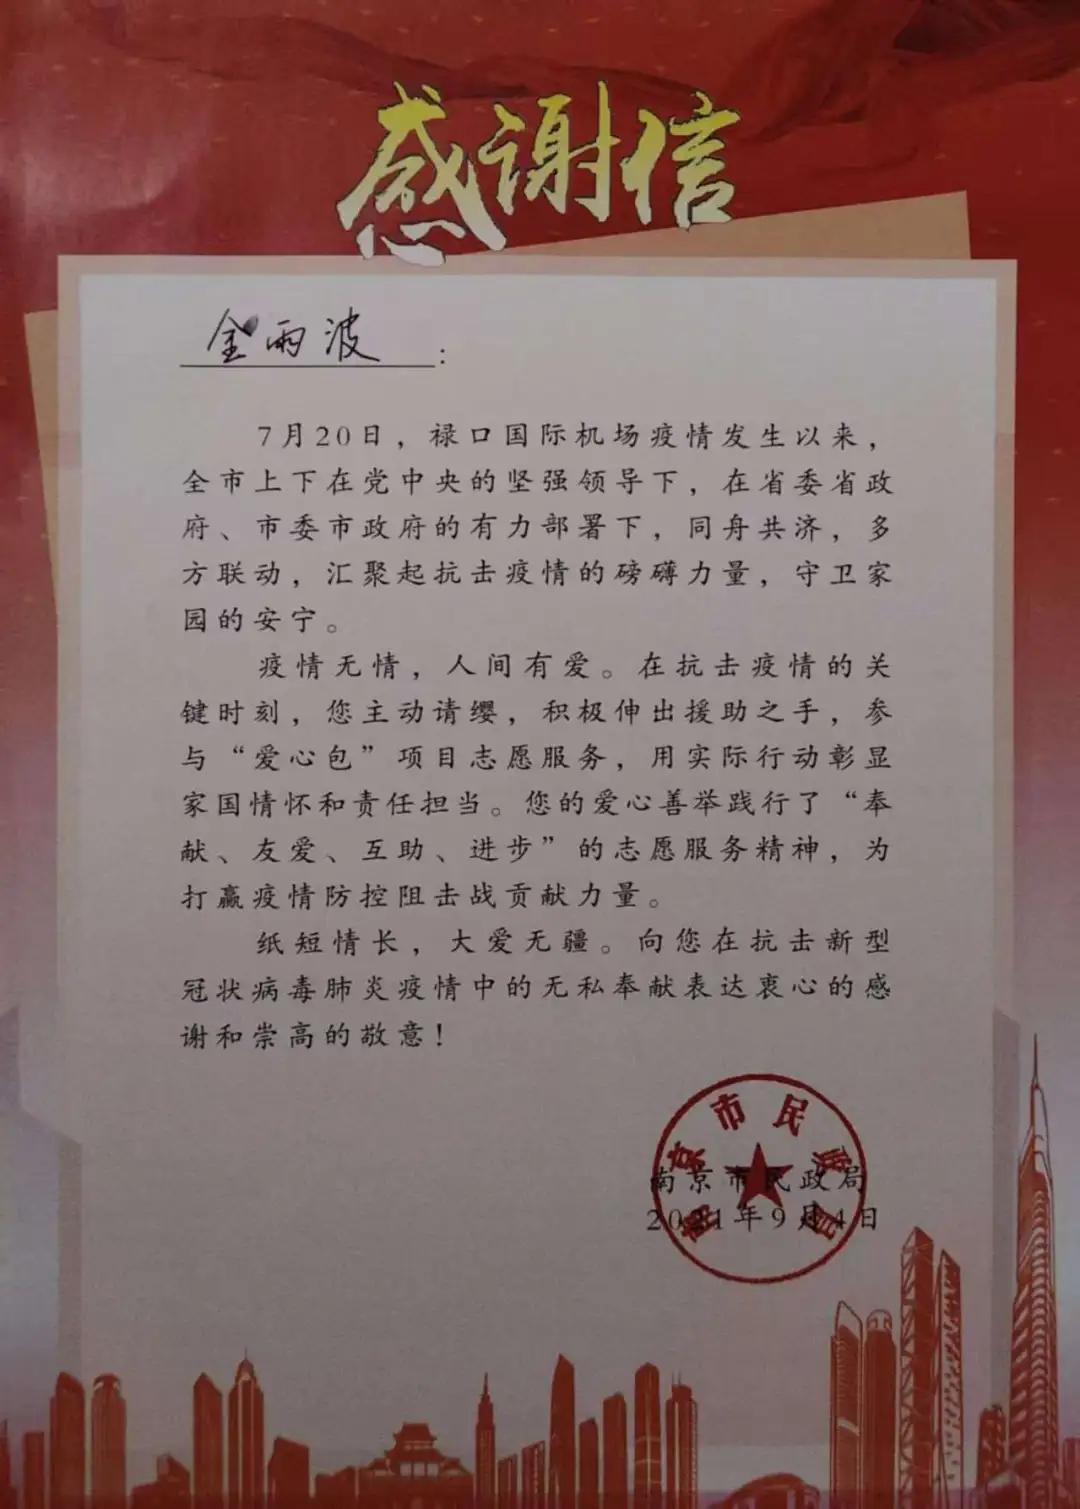 感谢信
金雨波:
7月20日，禄口国际机场疫情发生以来，
全市上下在党中央的坚强领导下，在省委省政
府、市委市政府的有力部署下，同舟共济，多
方联动，汇聚起抗击疫情的磅礴力量，守卫家
园的安宁。
疫情无情，人间有爱。在抗击疫情的关
键时刻，您主动请缨，积极伸出援助之手，参
与“爱心包”项目志愿服务，用实际行动彰显
家国情怀和责任担当。您的爱心善举践行了“奉
献、友爱、互助、进步”的志愿服务精神，为
打赢疫情防控阻击战贡献力量。
纸短情长，大爱无疆。向您在抗击新型
冠状病毒肺炎疫情中的无私奉献表达衷心的感
谢和崇高的敬意！
南京市民政局
南京市民政局
2021年9月4日